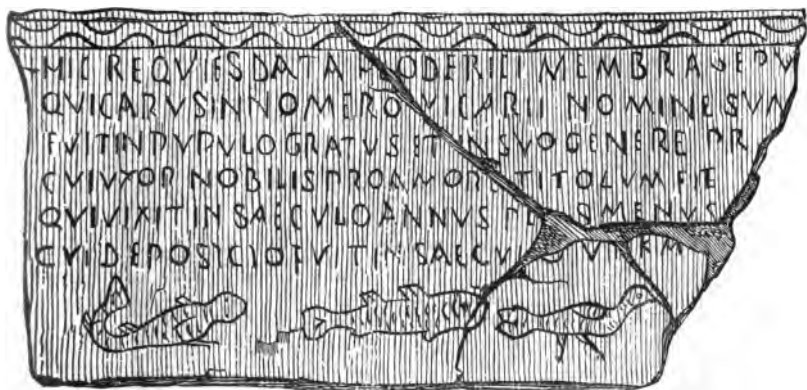 HIC REQVIES DATA HLODERICI MEMBRA SEPV
QVI CARVS IN NOMERO VICARII NOMINE SVM
FVIT IN PVPVLO GRATVS ET IN SVO GENERE PR
CVI VXOR NOBILIS PRO AMORE TITOLVM FIE
QVI VIXIT IN SAECVLO ANNVS PL S MENVS
CVI DEPOSICIO FVIT IN SAECV